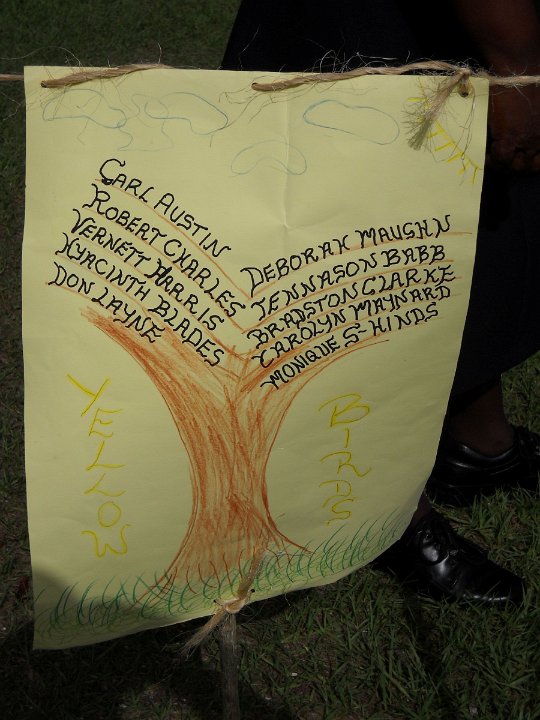 CARL AUSTIN
ROBERT CHARLES
VERNETT HARRIS
HYACINTH BLADES
DON LAYNE
DEBORAH MAUGHN
TENNASON BABB
BRADSTON CLARKE
CAROLYN MAYNARD
MONIQUE S-HINDS
YELLOW
BIRDS